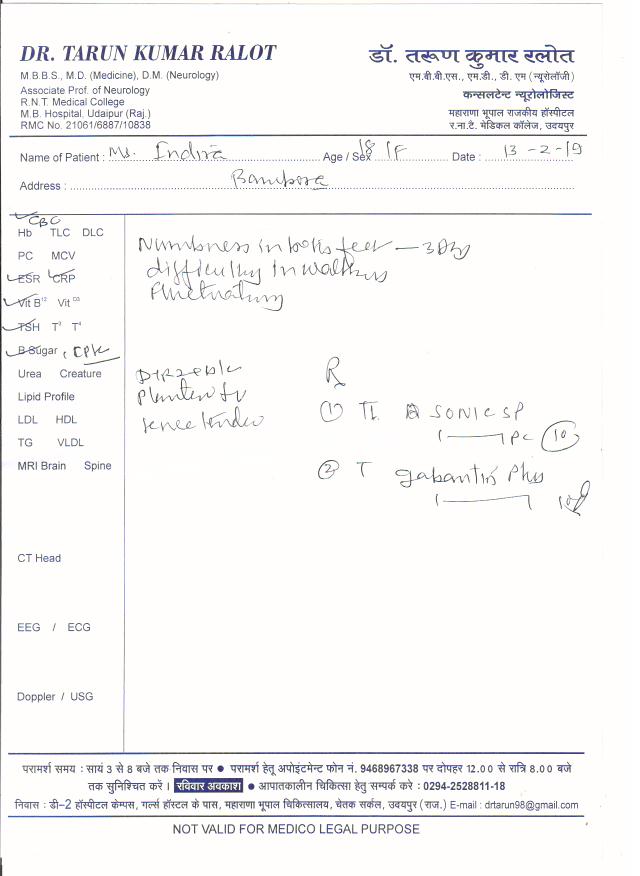 DR. TARUN KUMAR RALOT
M.B.B.S., M.D. (Medicine), D.M. (Neurology)
Associate Prof. of Neurology
R.N.T. Medical College
M.B. Hospital, Udaipur (Raj.)
RMC No. 21061/6887/10838
डॉ. तरूण कुमार रलोत
एम.बी.बी.एस., एम.डी., डी. एम (न्यूरोलॉजी)
कन्सलटेन्ट न्यूरोलोजिस्ट
महाराणा भूपाल राजकीय हॉस्पीटल
र.ना.टै. मेडिकल कॉलेज, उदयपुर
Name of Patient : Ms. Indira Age / Sex 18 / F Date : 13 - 2 - 19
Address : Bambora
CBC
Hb TLC DLC
PC MCV
ESR CRP
Vit B12 Vit D3
TSH T3 T4
B Sugar, CPK
Urea Creature
Lipid Profile
LDL HDL
TG VLDL
MRI Brain Spine
CT Head
EEG / ECG
Doppler / USG
Numbness in both feet — 3 Day
difficulty in walking
fluctuating
knee
R
(1) SONIC SP
PC (10)
(2) T gabantin Plus
10
परामर्श समय : सायं 3 से 8 बजे तक निवास पर ● परामर्श हेतु अपोइंटमेन्ट फोन नं. 9468967338 पर दोपहर 12.00 से रात्रि 8.00 बजे
तक सुनिश्चित करें । रविवार अवकाश ● आपातकालीन चिकित्सा हेतु सम्पर्क करे : 0294-2528811-18
निवास : डी–2 हॉस्पीटल केम्पस, गर्ल्स हॉस्टल के पास, महाराणा भूपाल चिकित्सालय, चेतक सर्कल, उदयपुर (राज.) E-mail : drtarun98@gmail.com
NOT VALID FOR MEDICO LEGAL PURPOSE